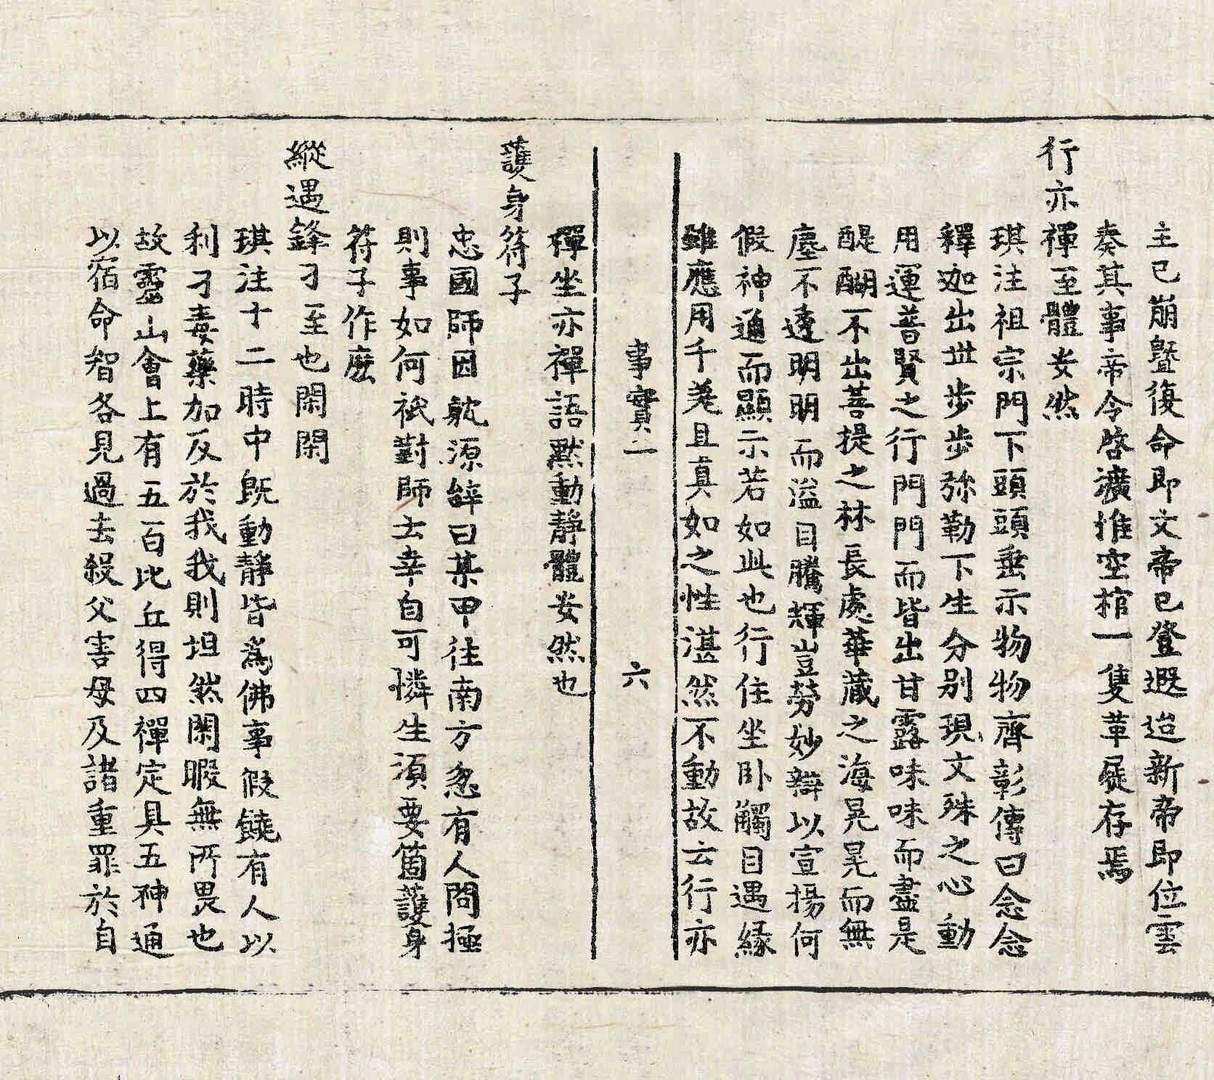 主已崩曁復命即文帝已登遐迨新帝即位雲
奏其事帝令啓壙推空棺一隻革屣存焉
行亦禪至體安然
琪注祖宗門下頭頭垂示物物齊彰傳曰念念
釋迦出世步步弥勒下生分別現文殊之心動
用運普賢之行門門而皆出甘露味味而盡是
醍醐不出菩提之林長處華藏之海晃晃而無
塵不透明明而溢目騰輝豈勞妙辯以宣揚何
假神通而顯示若如此也行住坐卧觸目遇緣
雖應用千差且真如之性湛然不動故云行亦
事實二 六
禪坐亦禪語黙動靜體安然也
護身符子
忠國師因躭源辝曰某甲往南方忽有人問極
則事如何祇對師云幸自可憐生須要箇護身
符子作麽
縱遇鋒刀至也閑閑
琪注十二時中旣動靜皆爲佛事假饒有人以
利刀毒藥加反於我我則坦然閑暇無所畏也
故靈山會上有五百比丘得四禪定具五神通
以宿命智各見過去殺父害母及諸重罪於自